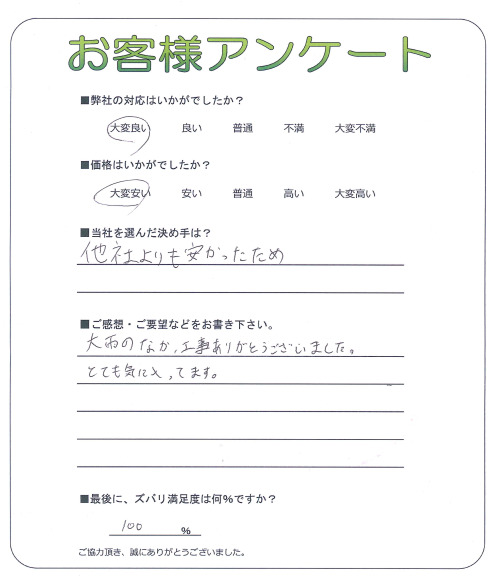 お客様アンケート
■弊社の対応はいかがでしたか?
大変良い 良い 普通 不満 大変不満
■価格はいかがでしたか?
大変安い 安い 普通 高い 大変高い
■当社を選んだ決め手は?
他社よりも安かったため
■ご感想・ご要望などをお書き下さい。
大雨のなか、工事ありがとうございました。
とても気に入ってます。
■最後に、ズバリ満足度は何%ですか?
100 %
ご協力頂き、誠にありがとうございました。